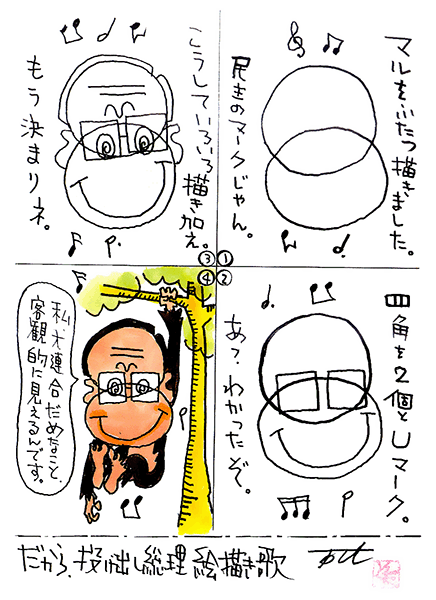 ①
マルをふたつ描きました。
民主のマークじゃん。
②
四角を2個とUマーク。
あ?わかったぞ。
③
こうしていろいろ描き加え。
もう決まりネ。
④
私大連合だめなこと、
客観的に見えるんです。
だから、投げ出し総理 絵描き歌